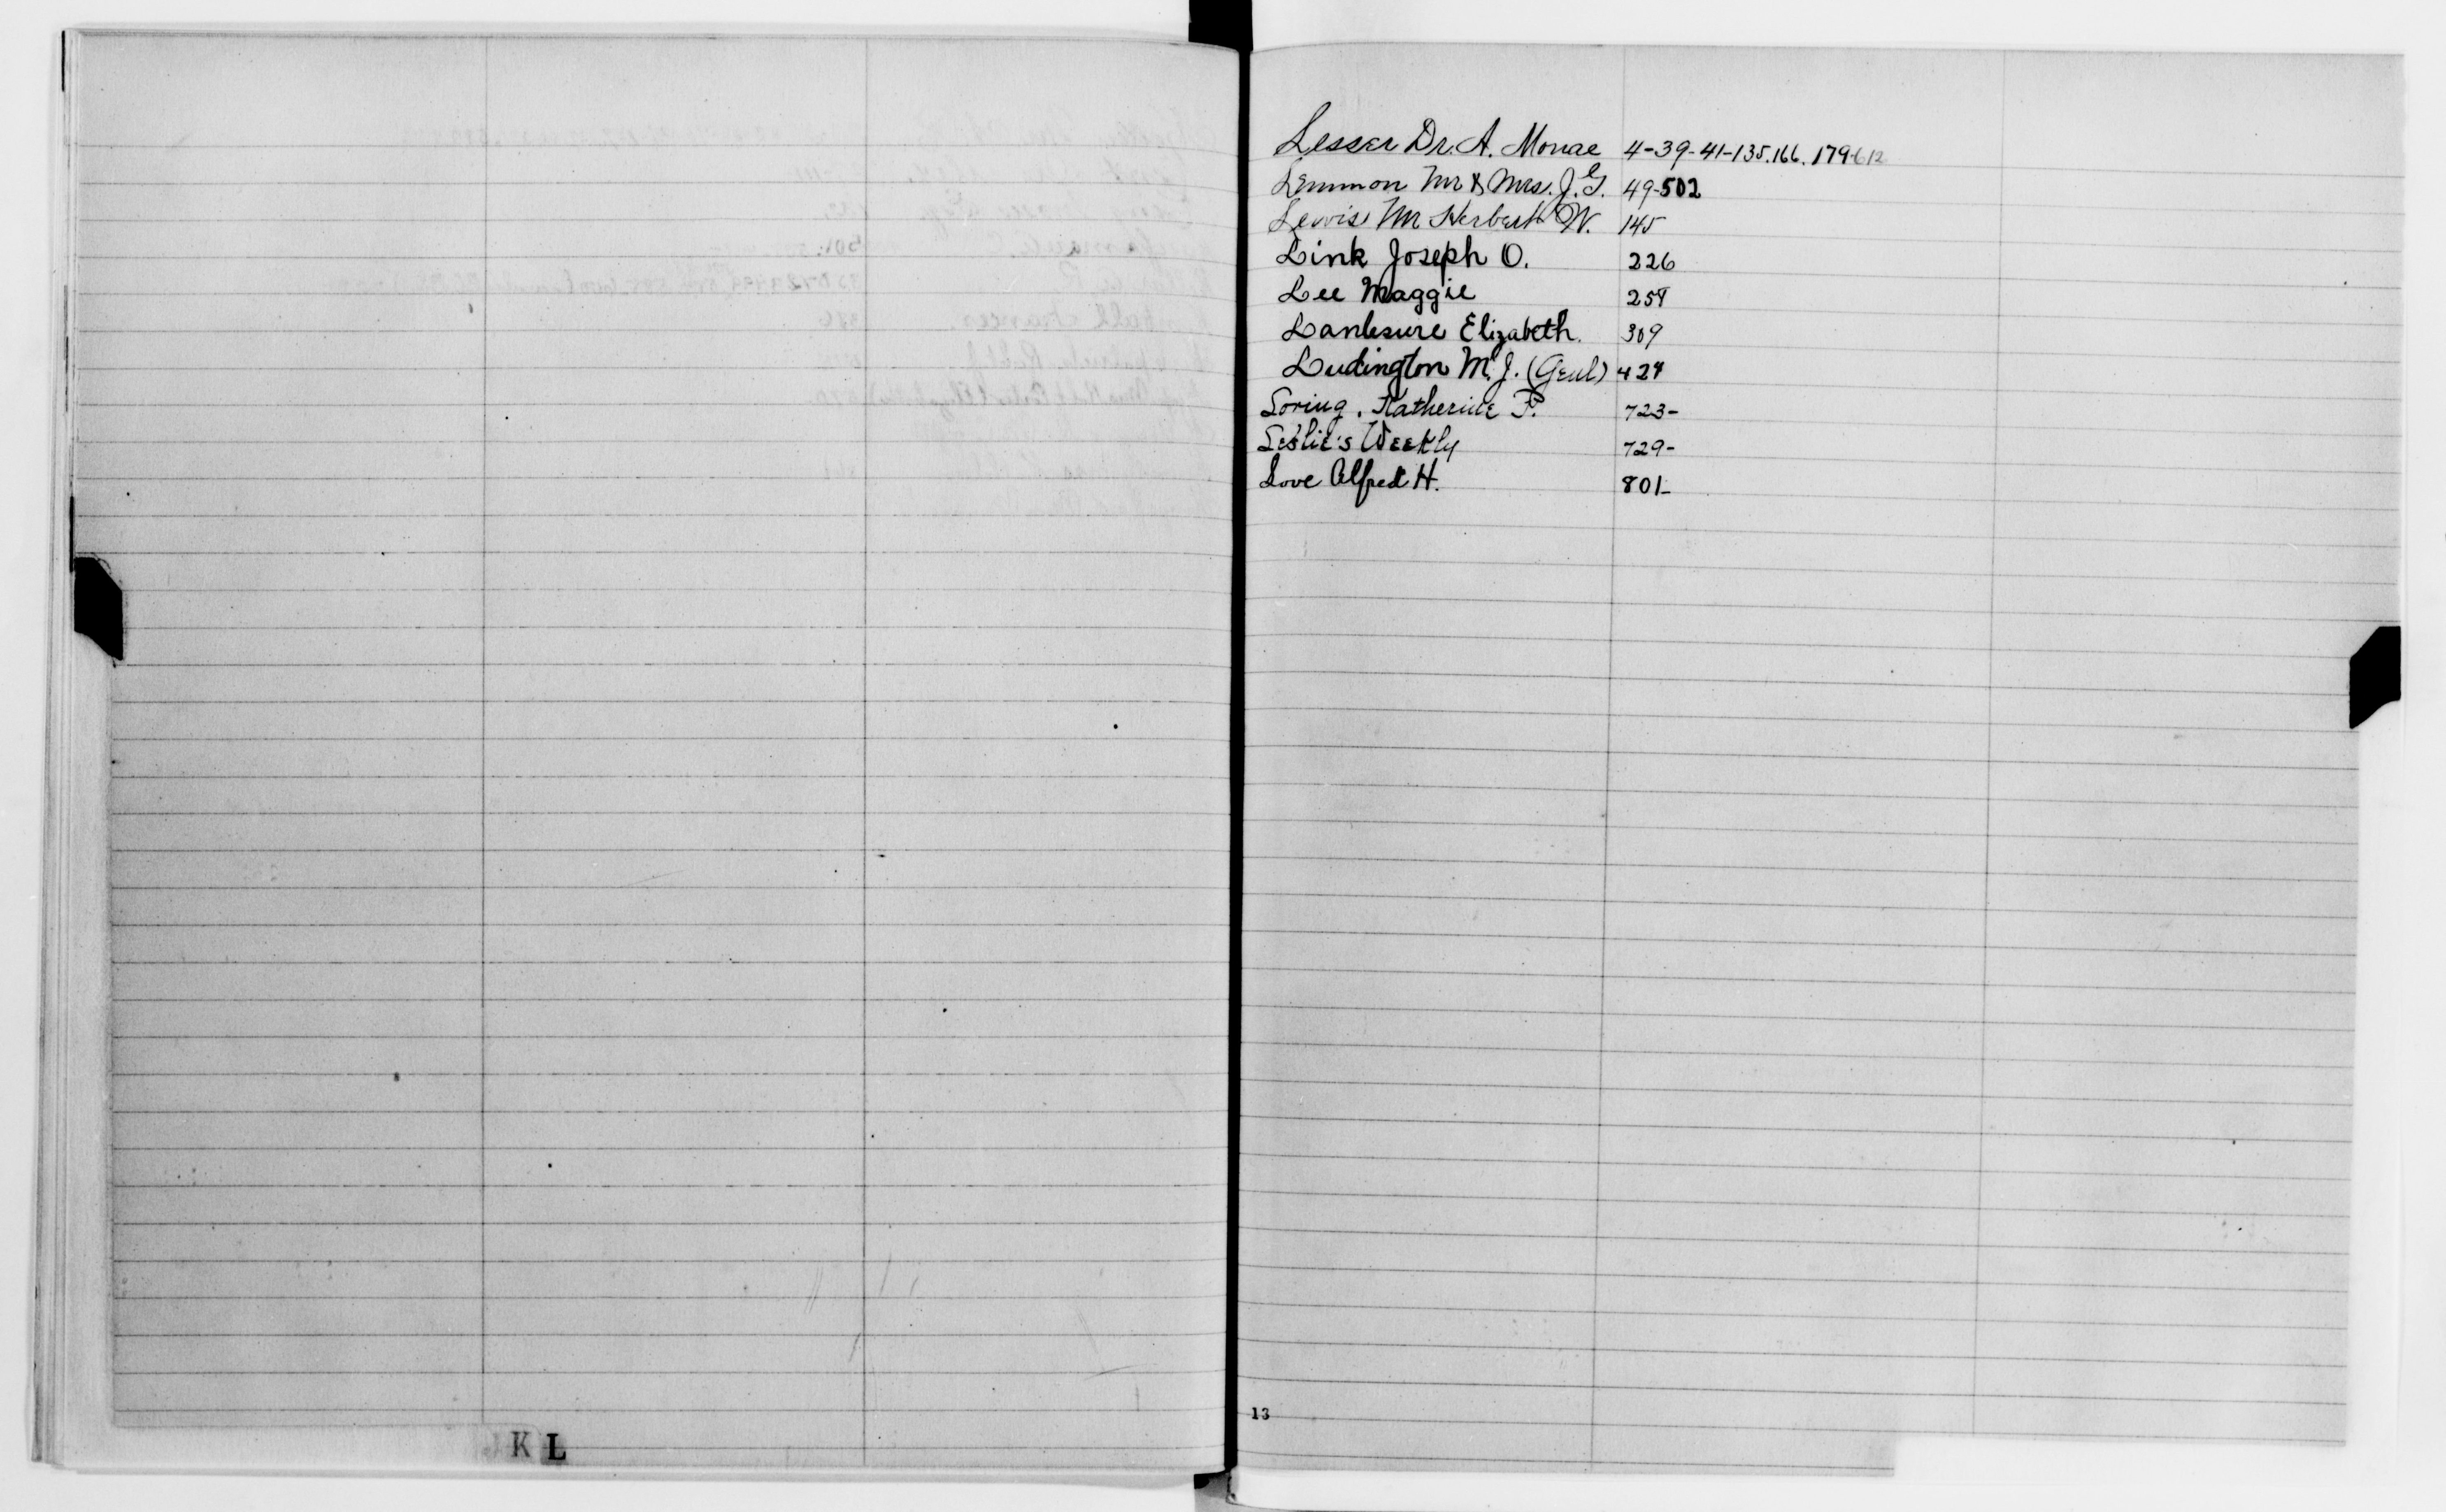 K L
Lesser Dr. A. Monae 4-39-41-135.166.179-612
Lemmon Mr & Mrs. J. G. 49-502
Lewis Mr Herbert W. 145
Link Joseph O. 226
Lee Maggie 258
Elizabeth. 309
Ludington M. J. (Genl) 428
Loring, Katherine P. 723-
Leslie's Weekly 729-
Love Alfred H. 801-
13